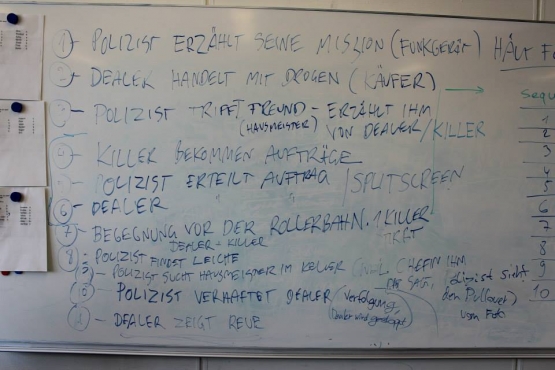 1 POLIZIST ERZÄHLT SEINE MISSION (FUNKGERÄT) HÄLT
2 DEALER HANDELT MIT DROGEN (KÄUFER)
3 POLIZIST TRIFFT FREUND - ERZÄHLT IHM
(HAUSMEISTER) VON DEALER/KILLER
4 KILLER BEKOMMEN AUFTRÄGE
POLIZIST ERTEILT AUFTRAG /SPLITSCREEN
6 DEALER
7 BEGEGNUNG VOR DER ROLLERBAHN. 1 KILLER
DEALER + KILLER
8 POLIZIST FINDET LEICHE
9 POLIZIST SUCHT HAUSMEISTER IM KELLER CHEFIN IHM
SAGT,
10 POLIZIST VERHAFTET DEALER (Verfolgung,
Dealer wird gestoppt)
Polizist sieht
den Pullover)
vom Foto
11 - DEALER ZEIGT REUE
Sequ
1
2
3
4
5
6
7
8
9
10